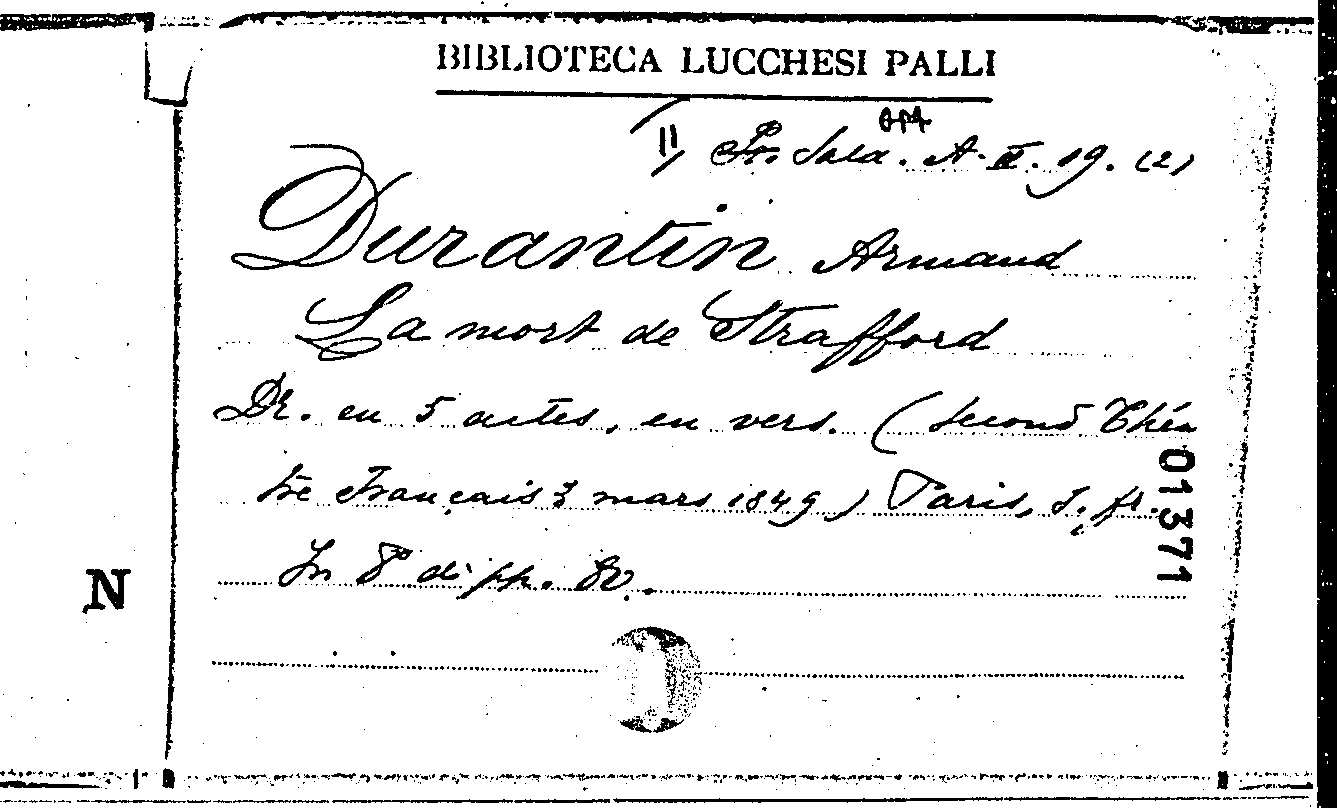 BIBLIOTECA LUCCHESI PALLI
II, Sala. A. II. 19. (2)
Durantin Armand
La mort de Strafford
Dr. en 5 actes, en vers. (Second Théa
tre Français 3 mars 1849) Paris, s. fr.
In 8° di pp. 80.
01371
N